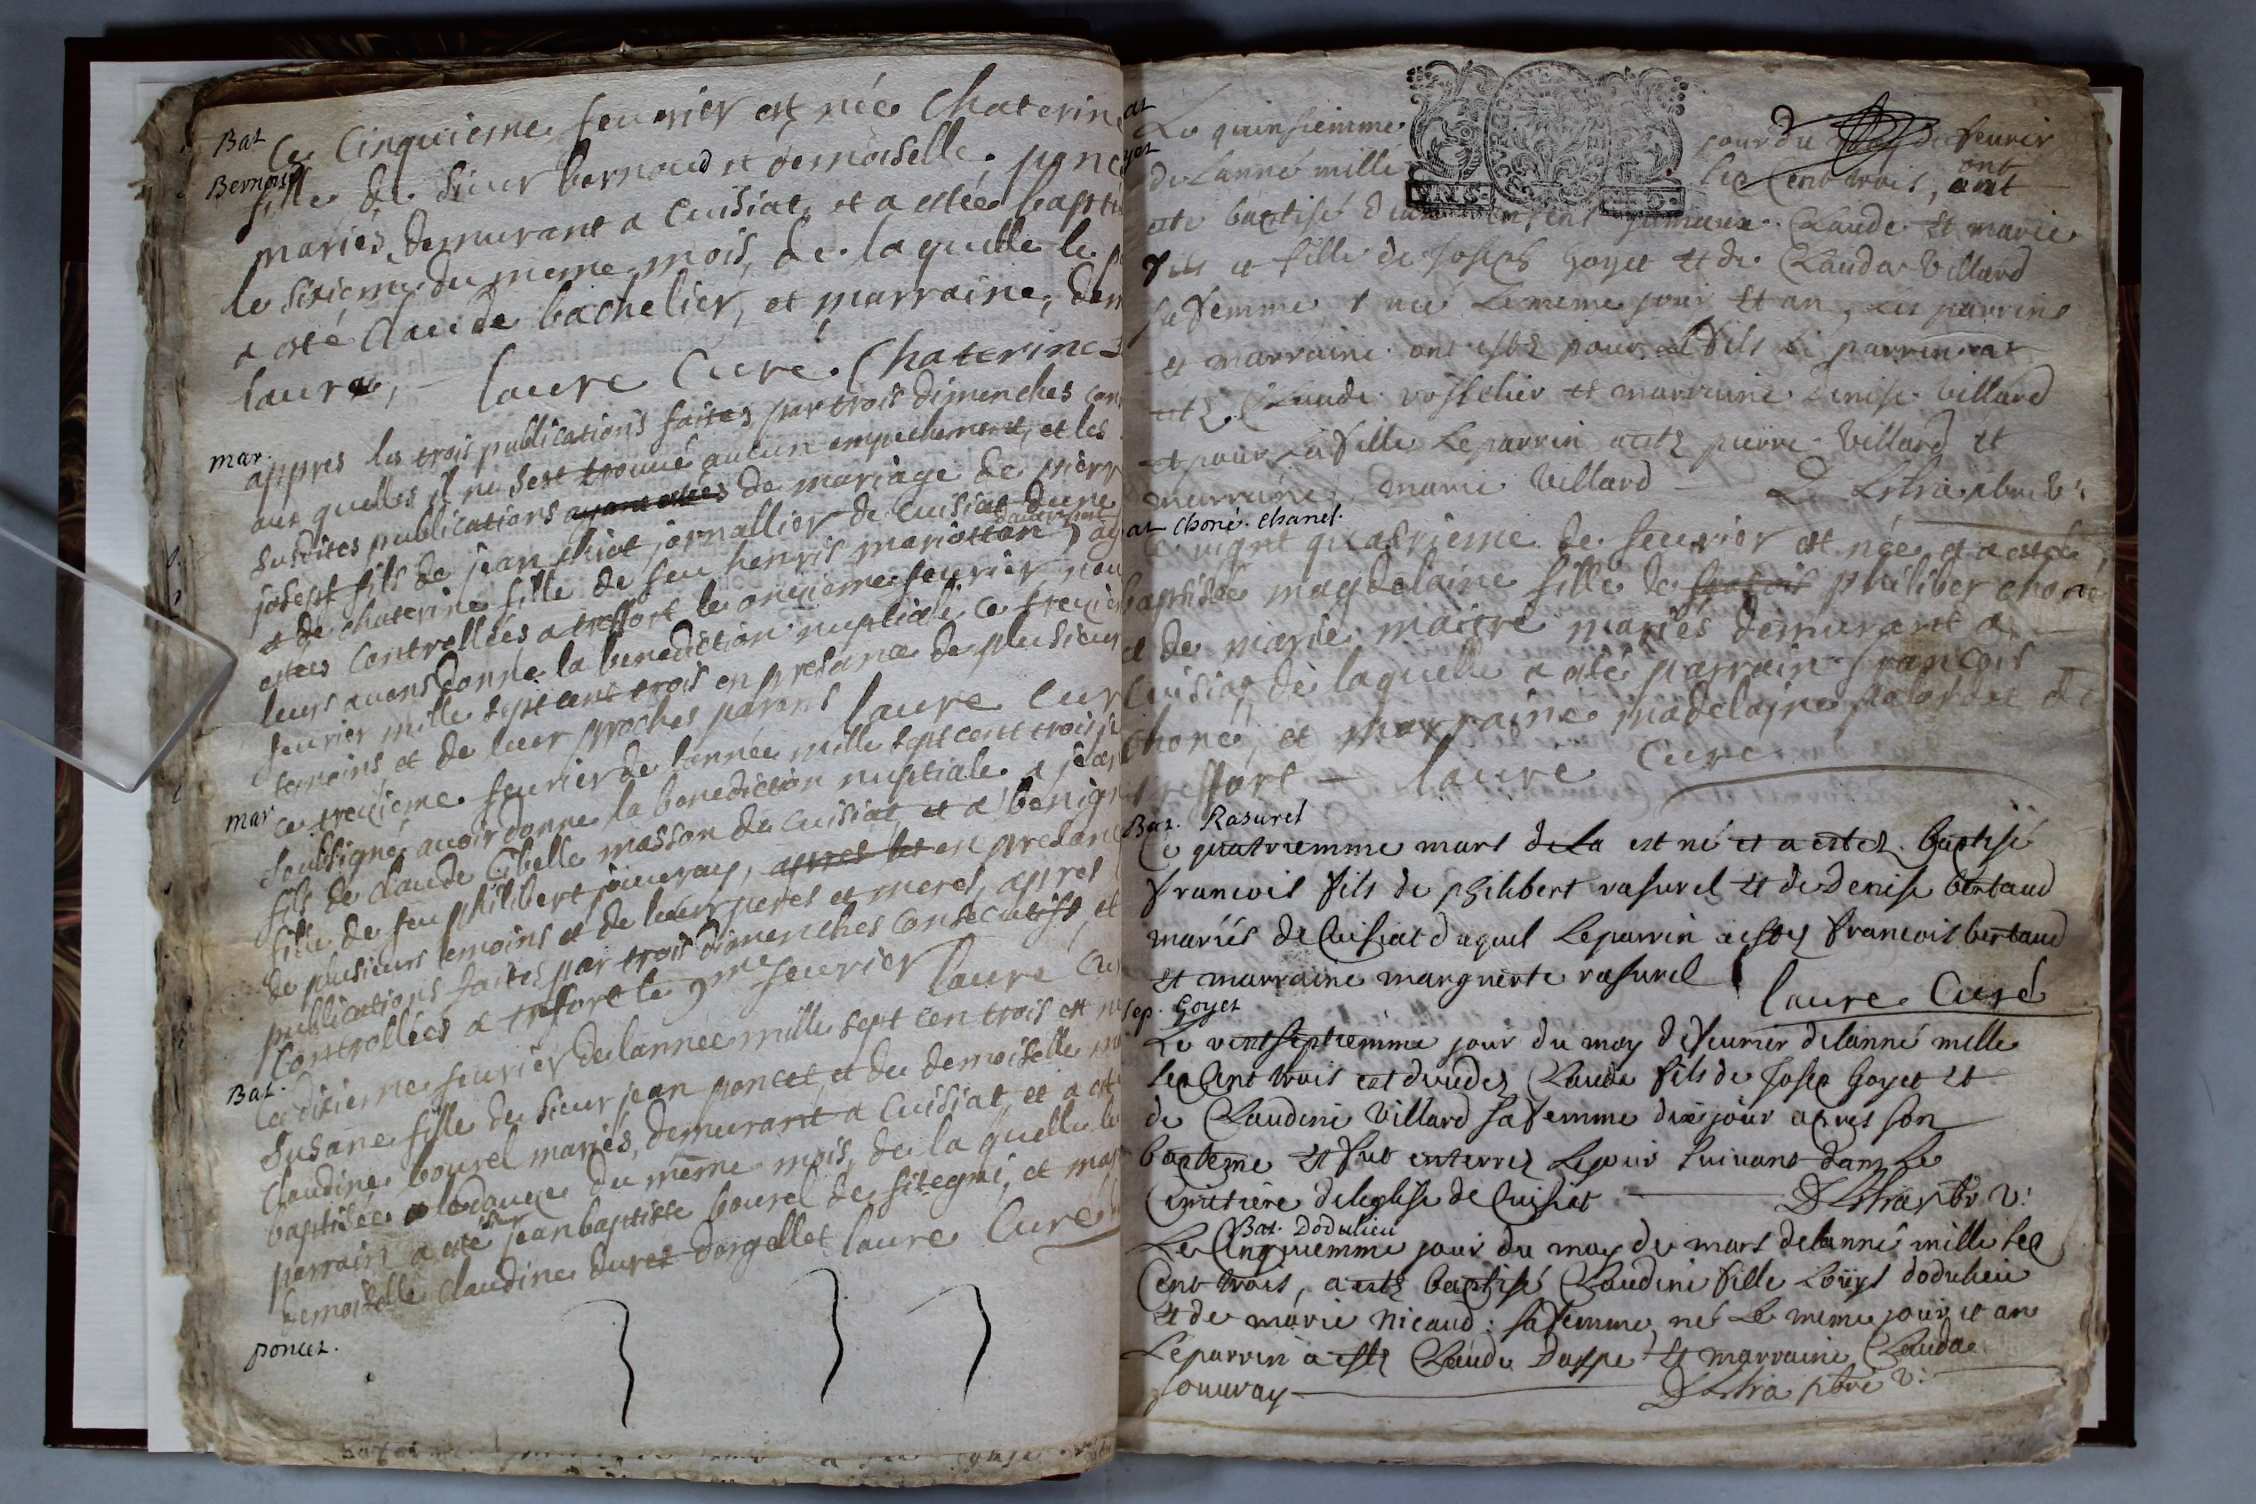 Bat
Ce Cinquieme feuvrier est née Chaterin
Bernost
fille de sieur bernoud et demoiselle pon
mariés demurant a Cuisiat, et a estée bapti
le sixieme du meme mois, de la quelle le
a esté Claude bachelier, et marraine, dem
laure, laure Curé. Chaterine
mar.
appres les trois publications faites par trois dimenches con
aux quelles il ne sest trouué aucun empechement, et les
susdites publications ayant estées de mariage de pierr
josept fils de jean jornallier de Cuisiat dune
et de chaterine fille de feu henris mariottan
estées Controllées a treffort le onzieme feuvrier nou
leurs avons donne la benediction nuptiale ce trezie
feuvrier mille sept cent trois en presance de plusieur
temoins et de leur proches parens laure Cur
mar
ce trezieme feuvrier de lannée mille sept cent trois je
soubsigné avoir donne la benediction nuptiale a jean
fils de claude Cibelle masson de Cuisiat, et a benign
fille de feu philibert jouvray, apres les en presanc
de plusieurs temoins et de leurs peres et meres, apres
publications faites par trois dimenches consecutifs, et
Controllées a treffort le 9me feuvrier laure Cu
Bat.
Ce dixieme feuvrier de lannée mille sept cen trois est n
Susane fille du sieur jean poncet et de demoiselle
Claudine bourel mariés, demurant a Cuisiat, et a est
baptisée le douze du meme mois, de la quelle le
parrain a esté jean baptiste bourel de sitegni, et mar
demoiselle Claudine duret dorgellet laure Curé
poncet.
Le quinsiemme jour du feuvrir
de Lanné mille sep Cent trois, ont
ont
este baptisé jumeux Claude et marie
fils et fille de Joseph Goyet et de Clauda Villard
sa femme née Lememe jour et an, Les parrins
et marraine ont estez pour le fils le parrin a
estez Claude rostelier et marraine Denise Villard
et pour la fille Leparrin a estz pierre Villard et
marraine marie Villard
bat Choné. Chanel.
Ce vignt quatrieme de feuvrier est née et a estée
baptisée magdelaine fille de philiber choné
et de marie maitre mariés demurant a
Cuisiat de laquelle a esté parrain francois
choné, et marraine madelaine palordet de
treffort laure Curé
Bat. Rasurel
Ce quatriemme mars de La est né et a estez baptisé
francois fils de philibert rasurel et de Denise bertaud
mariés de Cuisiat duquel Leparrin a estez francois bertaud
et marraine marguerite rasurel laure Curé
sep. Goyet
Le vintseptiemme jour du moy de feurier delanné mille
sep Cent trois est dcedez Claude fils de Josep Goyet et
de Claudine Villard sa femme dix jour apres son
bapteme et fut enterrez Lejour suivant dans le
Cimitiere deleglise de Cuisiat
Bat. Dodulieu
Le Cinquiemme jour du moy de mars delanné mille sep
Cent trois, a estz baptisé Claudine fille Loüys dodulieu
et de marie Nicaud: sa femme, né Le meme jour et an
Leparrin a estz Claude Daspe et marraine Clauda
Jouvray